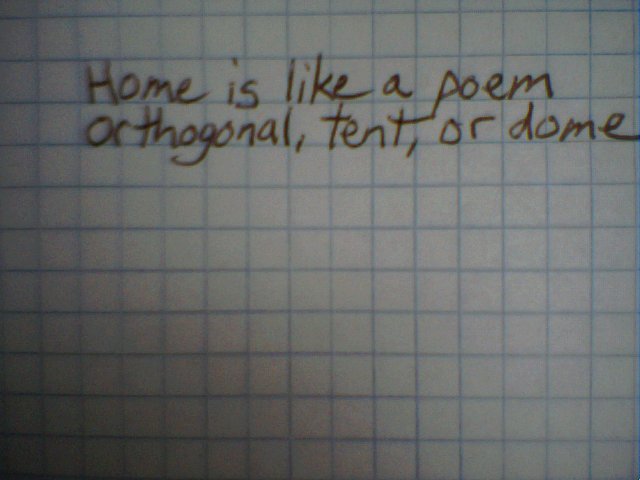 Home is like a poem
orthogonal, tent, or dome